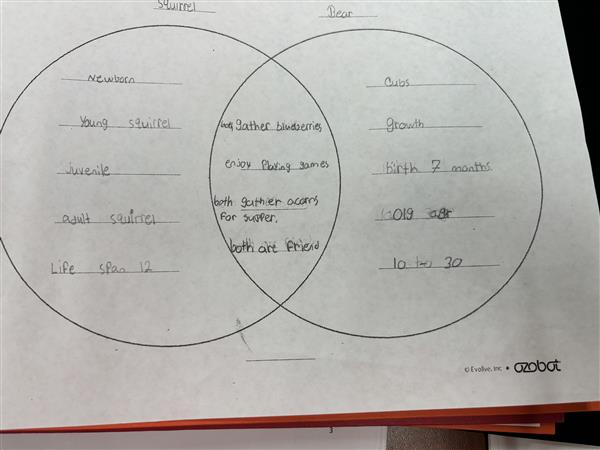 Squirrel
Bear
Newborn
Young squirrel
Juvenile
adult squirrel
Life span 12
both gather blueberries
enjoy Playing games
both gathier acorns
for supper.
both are friend
Cubs
growth
birth 7 months.
10 to 30
© Evollve, Inc • ozobot
3